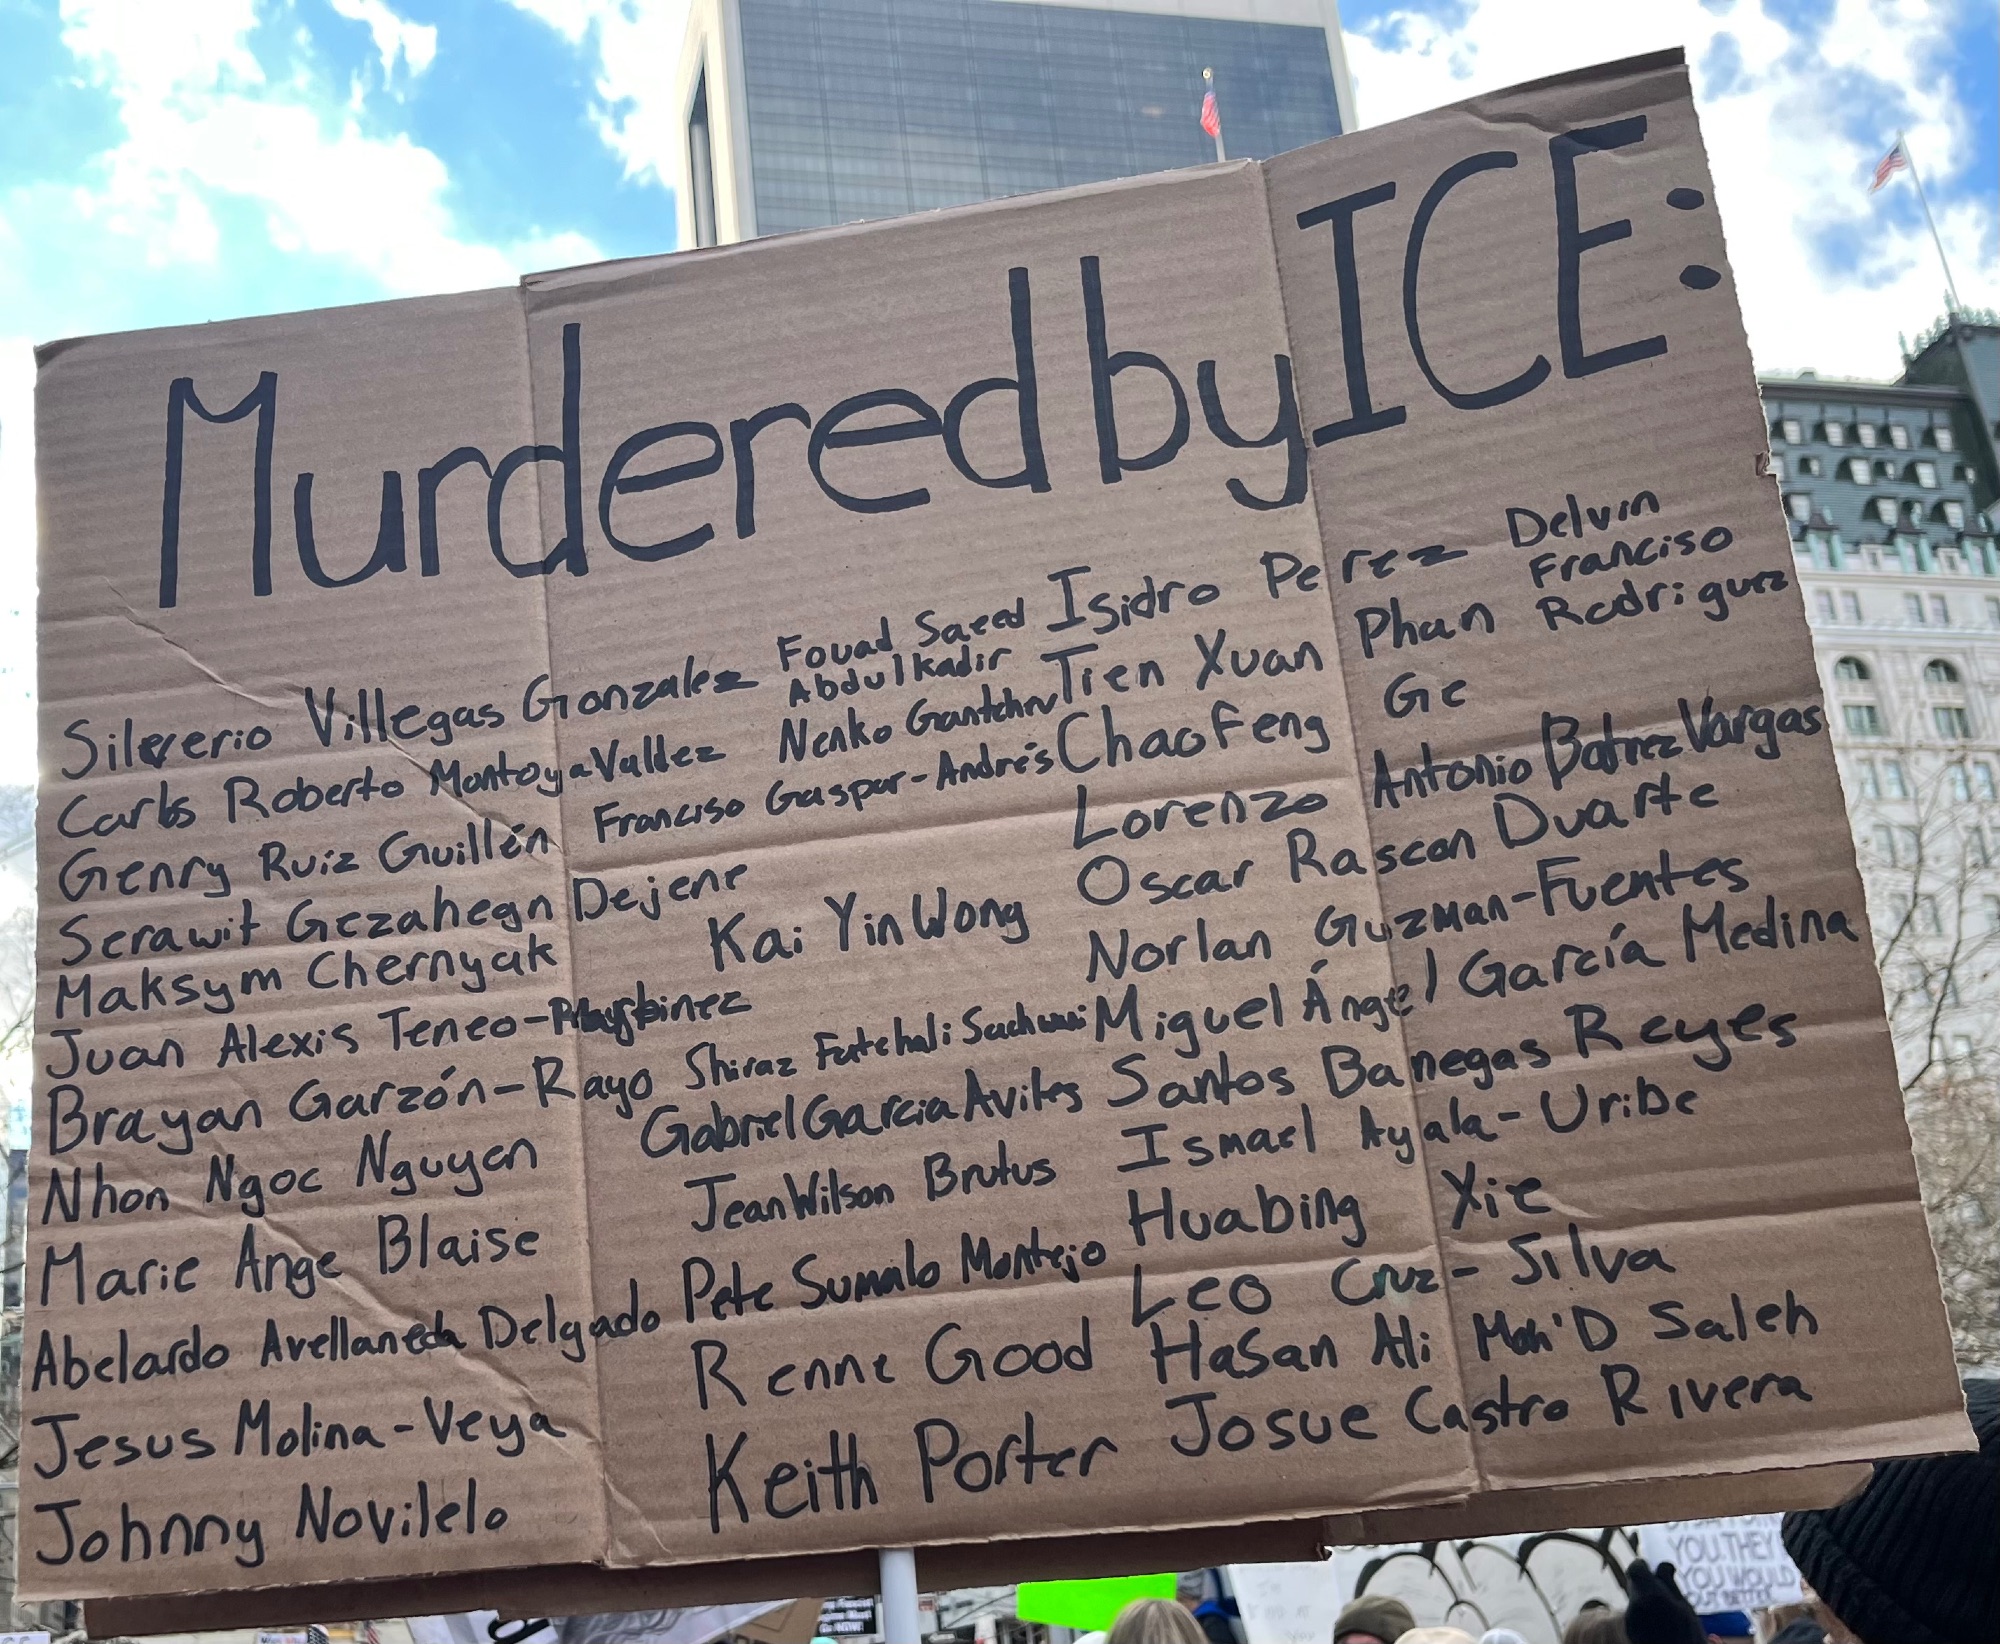 Murdered by ICE:
Silererio Villegas Gonzalez
Carlos Roberto Montoya Valdez
Genry Ruiz Guillén
Serawit Gezahegn Dejene
Maksym Chernyak
Juan Alexis Teneo-Martinez
Brayan Garzón-Rayo
Nhon Ngoc Nguyen
Marie Ange Blaise
Abelardo Avellaneda Delgado
Jesus Molina-Veya
Johnny Novilelo
Fouad Saeed
Abdulkadir
Nenko Gantchev
Franciso Gaspar-Andrés
Kai Yin Wong
Shiraz Fatehali Sachwani
Gabriel Garcia Aviles
Jean Wilson Brutus
Pete Sumalo Montejo
Renne Good
Keith Porter
Isidro Perez
Tien Xuan Phan
Chaofeng Ge
Lorenzo Antonio Batrez Vargas
Oscar Rascon Duarte
Norlan Guzman-Fuentes
Miguel Ángel García Medina
Santos Banegas Reyes
Ismael Ayala-Uribe
Huabing Xie
Leo Cruz-Silva
Hasan Ali Moh'D Saleh
Josue Castro Rivera
Delvin
Franciso
Rodriguez
YOU. THEY
YOU WOULD